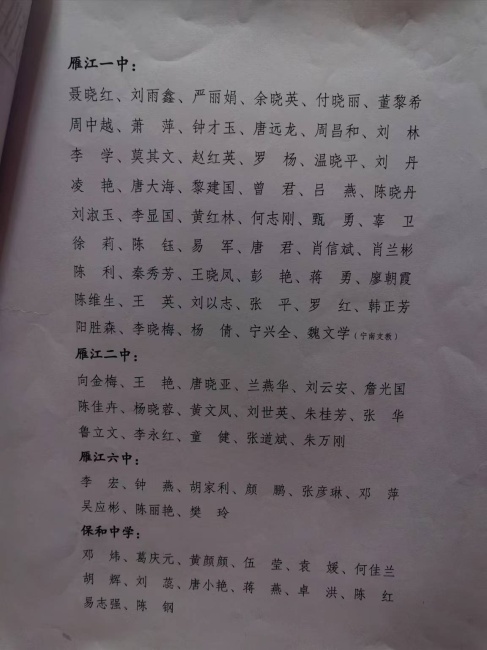 雁江一中：
聂晓红、刘雨鑫、严丽娟、余晓英、付晓丽、董黎希
周中越、萧　萍、钟才玉、唐远龙、周昌和、刘　林
李　学、莫其文、赵红英、罗　杨、温晓平、刘　丹
凌　艳、唐大海、黎建国、曾　君、吕　燕、陈晓丹
刘淑玉、李显国、黄红林、何志刚、甄　勇、辜　卫
徐　莉、陈　钰、易　军、唐　君、肖信斌、肖兰彬
陈　利、秦秀芳、王晓凤、彭　艳、蒋　勇、廖朝霞
陈维生、王　英、刘以志、张　平、罗　红、韩正芳
阳胜森、李晓梅、杨　倩、宁兴全、魏文学（宁南支教）
雁江二中：
向金梅、王　艳、唐晓亚、兰燕华、刘云安、詹光国
陈佳卉、杨晓蓉、黄文凤、刘世英、朱桂芳、张　华
鲁立文、李永红、童　健、张道斌、朱万刚
雁江六中：
李　宏、钟　燕、胡家利、颜　鹏、张彦琳、邓　萍
吴应彬、陈丽艳、樊　玲
保和中学：
邓　炜、葛庆元、黄颜颜、伍　莹、袁　媛、何佳兰
胡　辉、刘　蕊、唐小艳、蒋　燕、卓　洪、陈　红
易志强、陈　钢